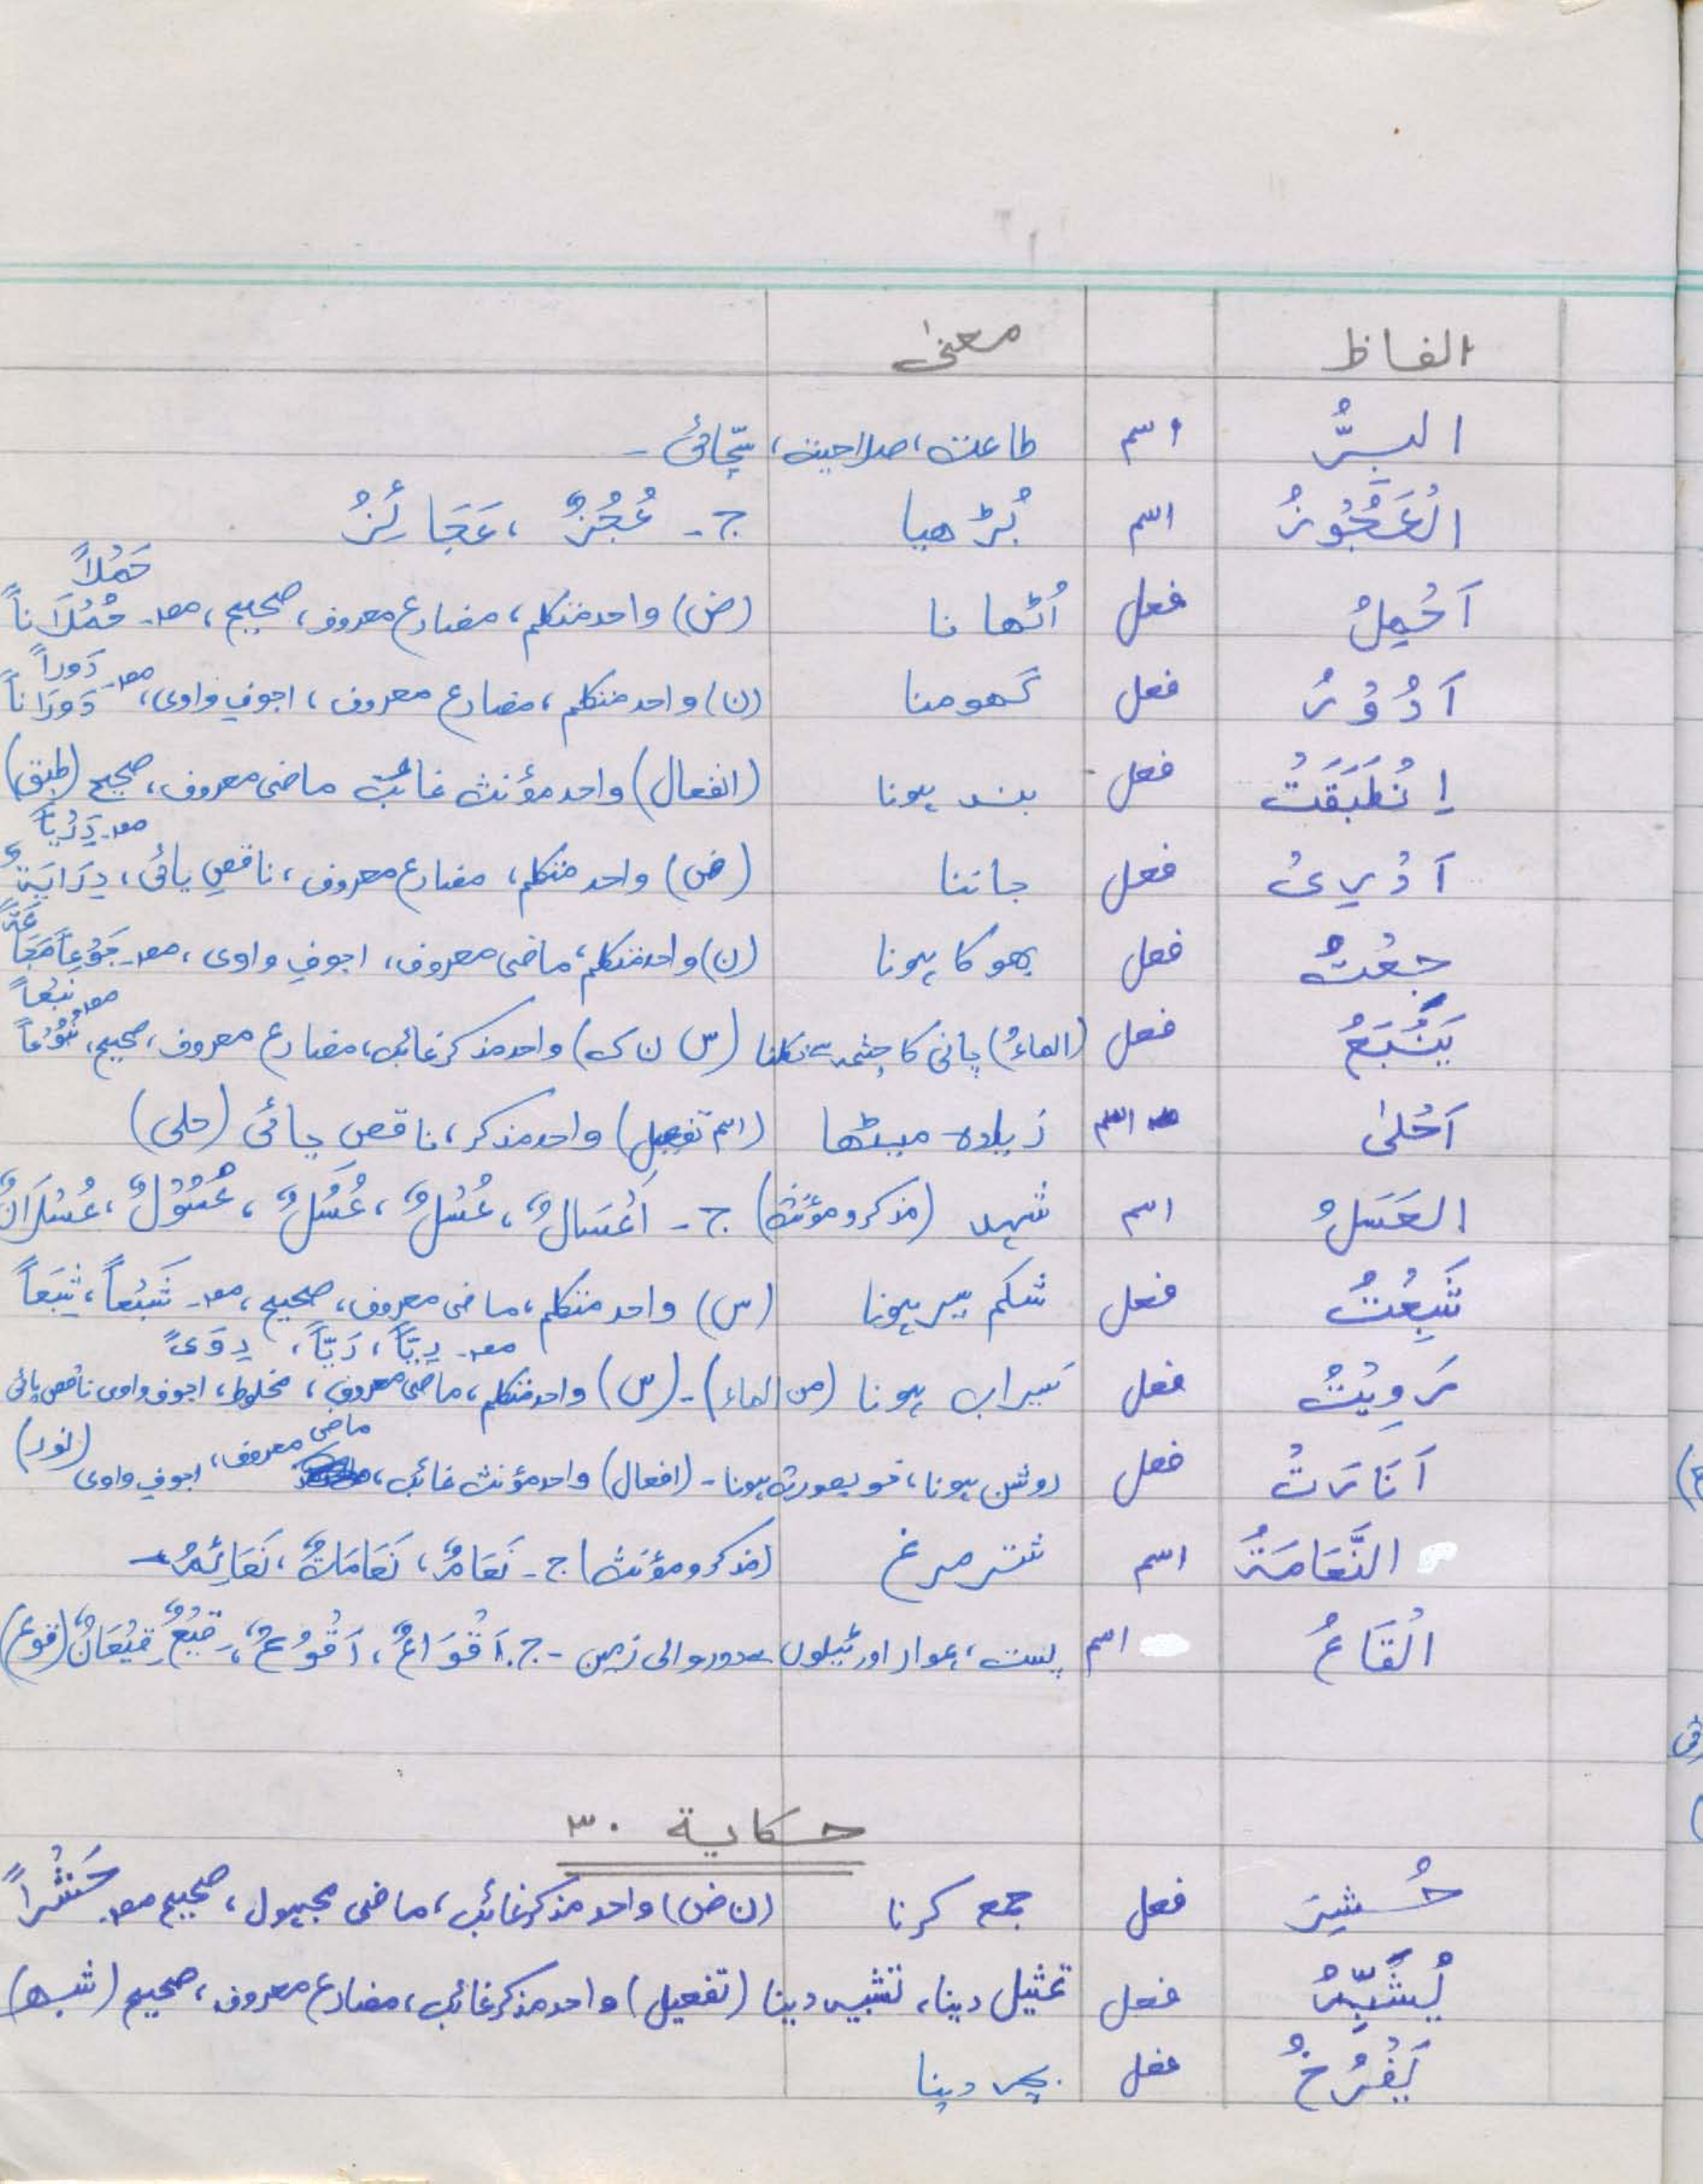 الفاظ معنیٰ
البِرُّ اسم طاعت، صلاحیت، سچّائی۔
اَلْعَجُوْزُ اسم بُڑھیا ج۔ عُجُزٌ، عَجَائِزُ
حَمْلاً
اَحْمِلُ فعل اُٹھانا (ض) واحد متکلم، مضارع معروف، صحیح، مصـ۔ حُمْلَاناً
مصـ۔ دَوراً
اَدُوْرُ فعل گھومنا (ن) واحد متکلم، مضارع معروف، اجوفِ واوی، دَوَرَاناً
اِنْطَبَقَتْ فعل بند ہونا (انفعال) واحد مؤنث غائب ماضی معروف، صحیح (طبق)
مصـ۔ دَرْیاً
اَدْرِیْ فعل جاننا (ض) واحد متکلم، مضارع معروف، ناقصِ یائی، دِرَایَةً
جُعْتُ فعل بھوکا ہونا (ن) واحد متکلم، ماضی معروف، اجوفِ واوی، مصـ۔ جَوْعاً مَجَاعَةً
مصـ۔ نَبْعاً
یَنْبَعُ فعل (الماءُ) پانی کا چشمہ سے نکلنا (س ن ک) واحد مذکر غائب، مضارع معروف، صحیح، نُبُوْعاً
اَحْلیٰ اسم زیادہ میٹھا (اسم تفضیل) واحد مذکر، ناقص یائی (حلی)
العَسَلُ اسم شہد (مذکر و مؤنث) ج۔ اَعْسَالٌ، عُسْلٌ، عُسُلٌ، عُسُوْلٌ، عُسْلَانٌ
شَبِعْتُ فعل شکم سیر ہونا (س) واحد متکلم، ماضی معروف، صحیح، مصـ۔ شَبْعاً، شِبَعاً
مصـ۔ رِیّاً، رَیّاً، رِوًی
رَوِیْتُ فعل سَیراب ہونا (من الماء)۔ (س) واحد متکلم، ماضی معروف، مخلوط، اجوف واوی ناقص یائی
ماضی
اَنَارَتْ فعل روشن ہونا، خوبصورت ہونا۔ (افعال) واحد مؤنث غائب، معروف، اجوفِ واوی (نور)
النَّعَامَةُ اسم شتر مرغ (مذکر و مؤنث) ج۔ نَعَامٌ، نَعَامَاتٌ، نَعَائِمُ۔
اَلْقَاعُ اسم پست، ہموار اور ٹیلوں سے دور والی زمین۔ ج۔ اَقْوَاعٌ، اَقْوُعٌ، قِیَعٌ، قِیْعَانٌ (قوع)
حکایة ۳۰
حُشِرَ فعل جمع کرنا (ن ض) واحد مذکر غائب، ماضی مجہول، صحیح مصـ۔ حَشْراً
یُشَبِّهُ فعل تمثیل دینا، تشبیہ دینا (تفعیل) واحد مذکر غائب، مضارع معروف، صحیح (شبه)
یَفْرُخُ فعل بچہ دینا